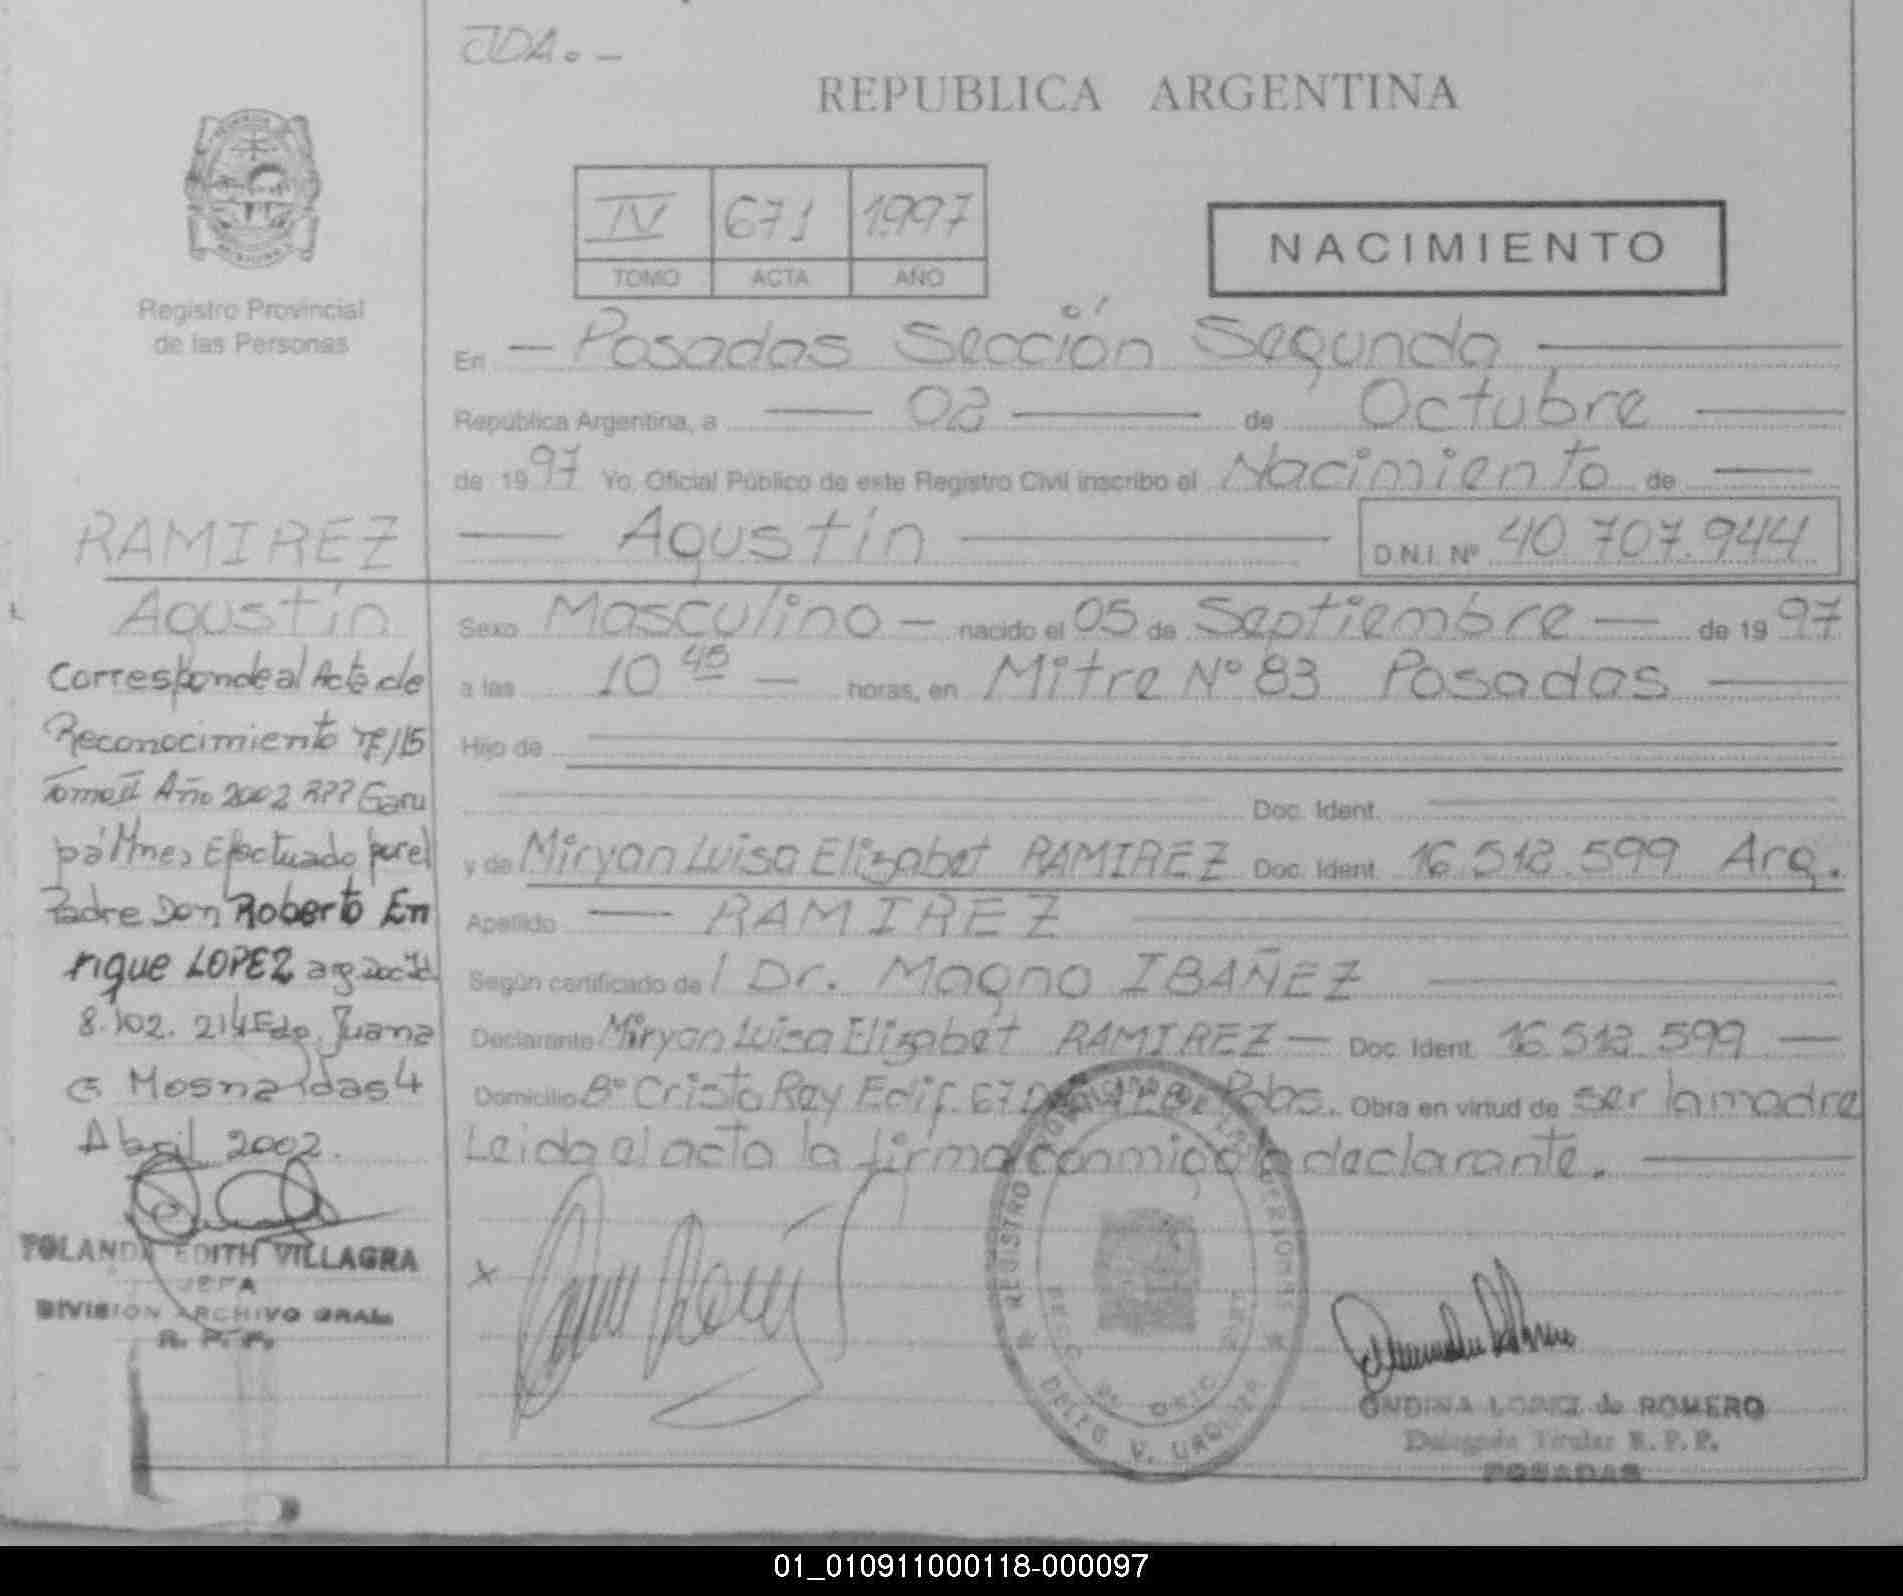 JDA. —
REPUBLICA ARGENTINA
IV 671 1997
TOMO ACTA AÑO
NACIMIENTO
Registro Provincial
de las Personas
En — Posadas Sección Segunda
República Argentina, a — 02 — de Octubre
de 1997 Yo, Oficial Público de este Registro Civil inscribo el Nacimiento de —
— Agustín — D.N.I. Nº 40.707.944
Sexo Masculino — nacido el 05 de Septiembre — de 1997
a las 10 45 — horas, en Mitre Nº 83 Posadas —
Hijo de
Doc. Ident.
y de Miryan Luisa Elizabet RAMIREZ Doc. Ident. 16.512.599 Arg.
Apellido — RAMIREZ
Según certificado del Dr. Magno IBAÑEZ
Declarante Miryan Luisa Elizabet RAMIREZ — Doc. Ident. 16.512.599 —
Domicilio Bº Cristo Rey Edif. 67 Pdas. Obra en virtud de ser la madre
Leida el acta la firma conmigo la declarante. —
RAMIREZ
Agustín
Corresponde al Acta de
Reconocimiento Nº/15
Tomo II Año 2002 RPP Garu
pá Mnes Efectuado por el
Padre Don Roberto En
rique LOPEZ arg Doc Id
8.102.214 Fdo. Juana
G Mosna Pdas 4
Abril 2002.
YOLANDA EDITH VILLAGRA
JEFA
DIVISION ARCHIVO GRAL.
R. P. P.
x
REGISTRO PROVINCIAL DE LAS PERSONAS
DELEG. V. URQUIZA
ONDINA LOPEZ de ROMERO
Delegada Titular R. P. P.
POSADAS
01_010911000118-000097